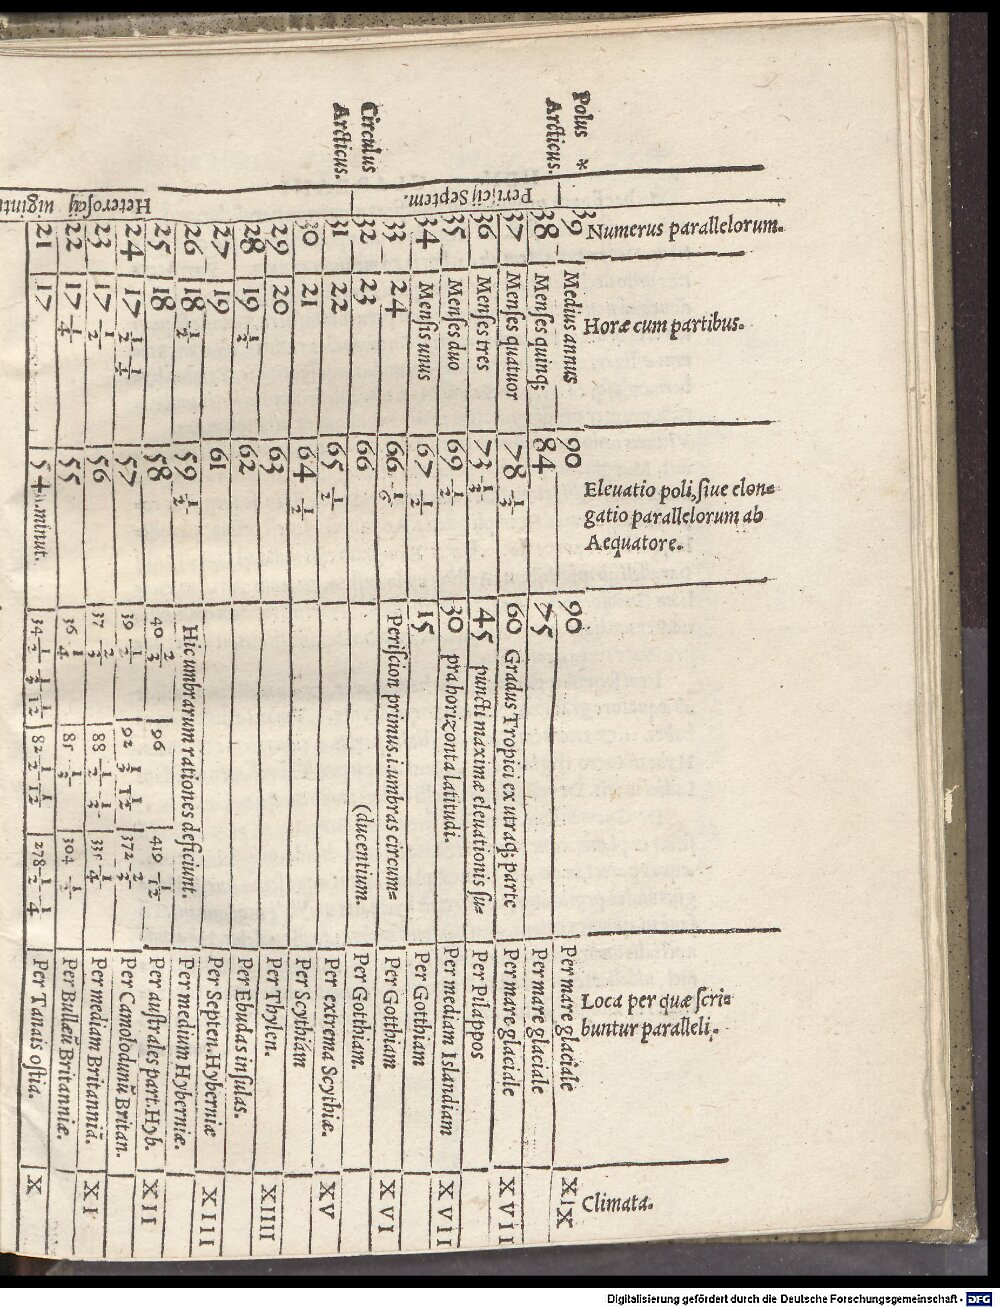 Polus *
Arcticus.
Circulus
Arcticus.
Periscij Septem.
Heteroscij
uiginti
Numerus parallelorum.
Horæ cum partibus.
Eleuatio poli, siue elon=
gatio parallelorum ab
Aequatore.
Loca per quæ scri=
buntur paralleli.
Climata.
39 Medius annus 90 90 Per mare glaciale XIX
38 Menses quinq; 84 75 Per mare glaciale
37 Menses quatuor 78 1/3 60 Gradus Tropici ex utraq; parte Per mare glaciale XVII
36 Menses tres 73 1/3 45 puncti maximæ eleuationis su= Per Pilappos
35 Menses duo 69 1/2 30 pra horizonta latitudi. Per mediam Islandiam XVII
34 Mensis unus 67 1/2 15 Per Gotthiam
33 24 66 1/6 Periscion primus.i.umbras circum= Per Gotthiam XVI
32 23 66 (ducentium. Per Gotthiam.
31 22 65 1/2 Per extrema Scythiæ. XV
30 21 64 1/2 Per Scythiam
29 20 63 Per Thylen. XIIII
28 19 1/2 62 Per Ebudas insulas.
27 19 61 Per Septen. Hyberniæ XIII
26 18 1/2 59 1/2 Hic umbrarum rationes deficiunt. Per medium Hyberniæ.
25 18 58 40 2/3 96 419 1/12 Per australes part. Hyb. XII
24 17 1/2 1/4 57 39 1/2 92 1/3 1/12 372 2/3 Per Camolodunū Britan.
23 17 1/2 56 37 2/3 88 1/2 1/3 335 1/4 Per mediam Britanniā. XI
22 17 1/4 55 36 1/4 85 1/2 304 1/2 Per Bullæū Britanniæ.
21 17 54 minut. 34 1/2 1/3 1/12 82 1/2 1/12 278 1/2 1/4 Per Tanais ostia. X
Digitalisierung gefördert durch die Deutsche Forschungsgemeinschaft - DFG